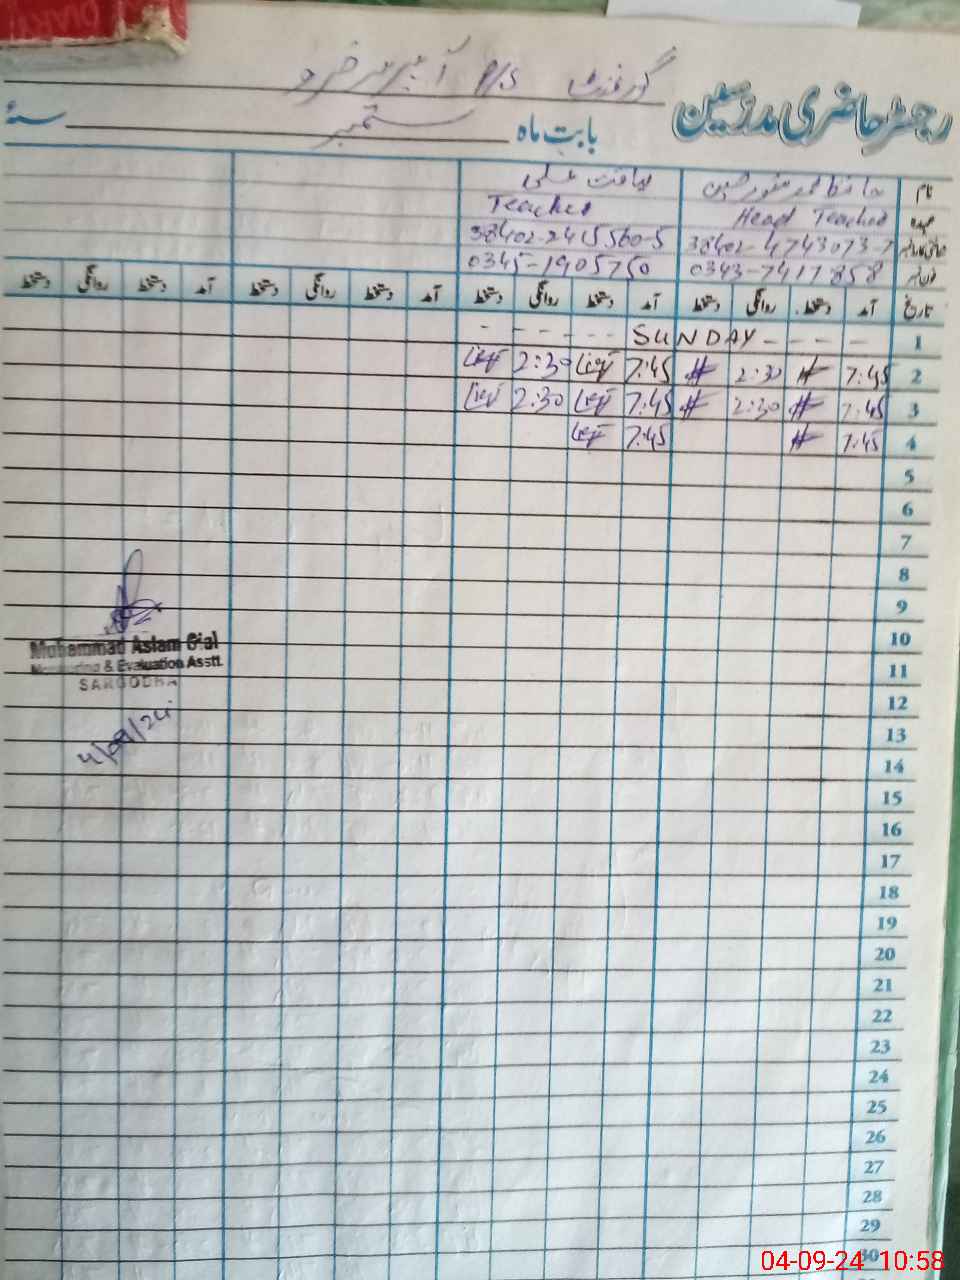 رجسٹر حاضری مدرسین
گورنمنٹ P/S
بابت ماہ ستمبر سنہ
نام حافظ محمد منظور حسین لیاقت علی
عہدہ Head Teacher Teacher
شناختی کارڈ نمبر 38402-4743073-7 38402-2415560-5
فون نمبر 0343-7417858 0345-1905750
تاریخ آمد دستخط روانگی دستخط آمد دستخط روانگی دستخط آمد دستخط روانگی دستخط آمد دستخط روانگی دستخط
1 - - - - SUNDAY - - - - - -
2 7:45 2:30 7:45 لیاقت 2:30 لیاقت
3 7:45 2:30 7:45 لیاقت 2:30 لیاقت
4 7:45 7:45 لیاقت
5
6
7
8
9
10
Muhammad Aslam Gial
11
Monitoring & Evaluation Asstt.
SARGODHA
12
13
4/09/24
14
15
16
17
18
19
20
21
22
23
24
25
26
27
28
29
30
04-09-24 10:58